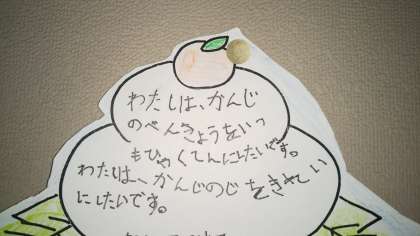 わたしは、かんじ
のべんきょうをいつ
もひゃくてんにしたいです。
わたしは、かんじのじをきれい
にしたいです。